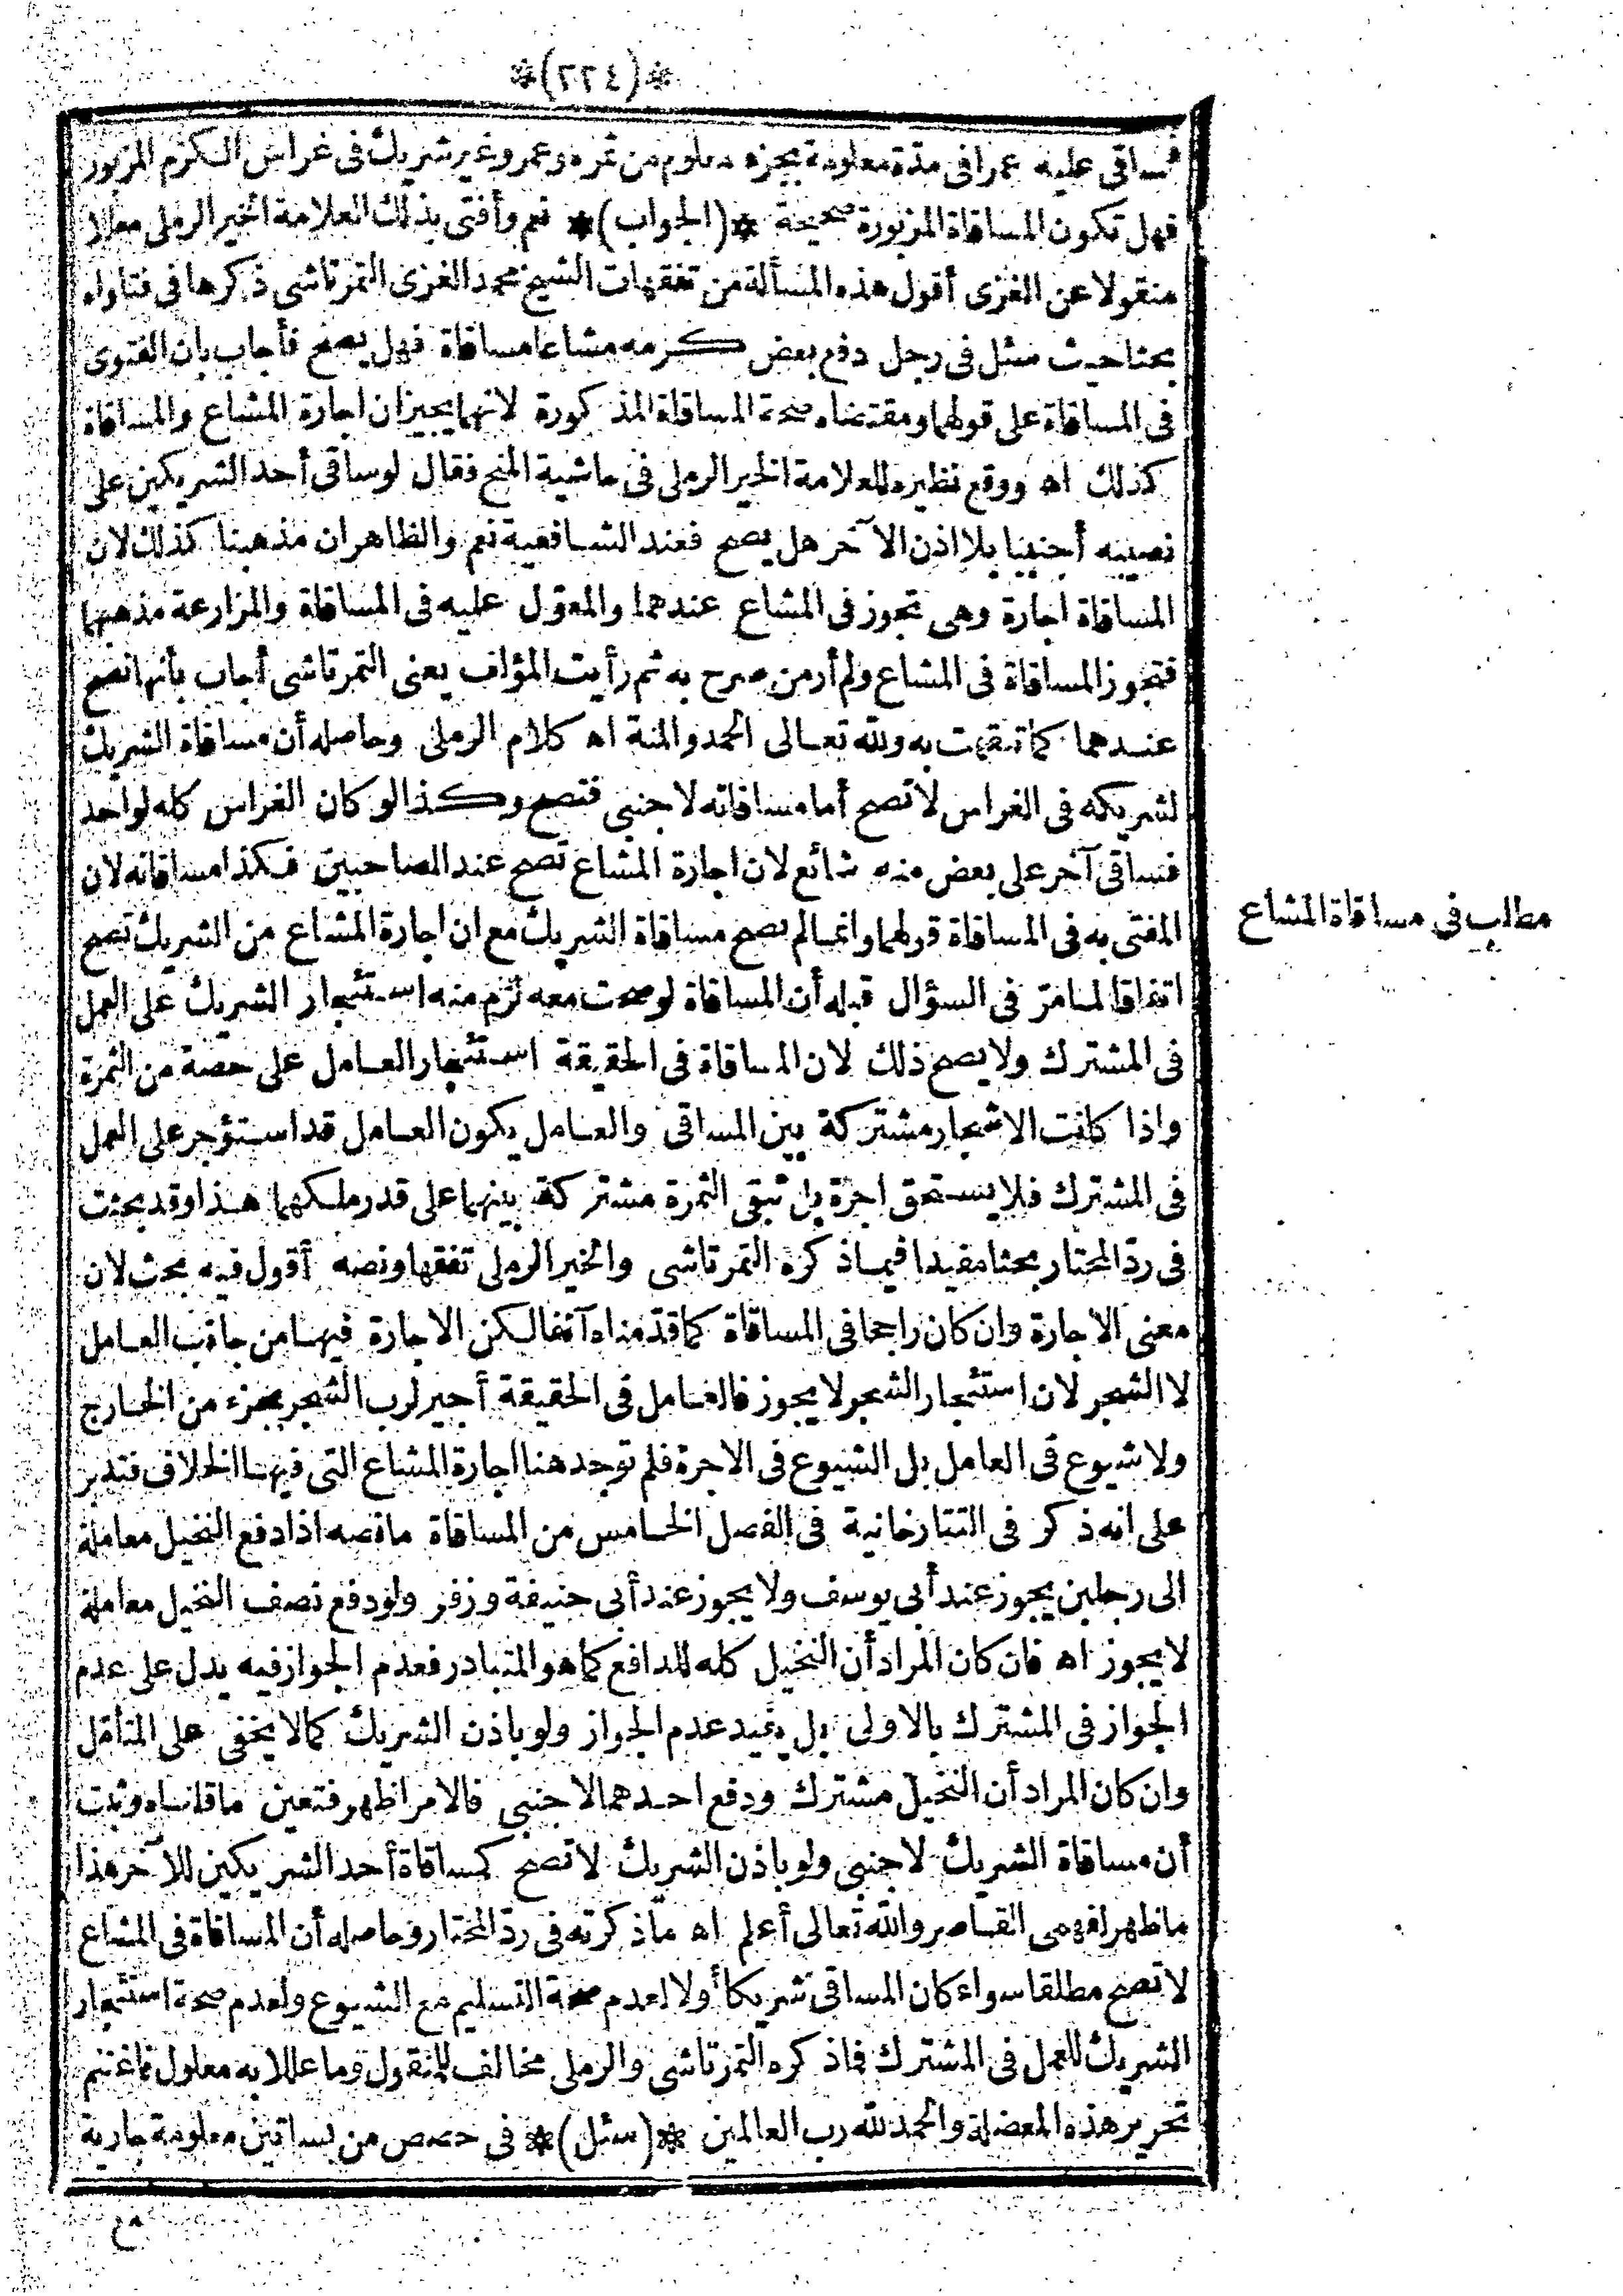 *(٢٢٤)*
فساقى عليه عمرا فى مدّة معلومة بجزء معلوم من ثمره وعمرو غير شريك فى غراس الكرم المزبور
فهل تكون المساقاة المزبورة صحيحة *(الجواب)* نعم وأفتى بذلك العلامة الخير الرملى معللا
منقولا عن الغزى أقول هذه المسألة من تفقهات الشيخ محمد الغزى التمرتاشى ذكرها فى فتاواه
بحثا حيث سئل فى رجل دفع بعض كرمه مشاعا مساقاة فهل يصح فأجاب بان الفتوى
فى المساقاة على قولهما ومقتضاه صحة المساقاة المذكورة لانهما يجيزان اجارة المشاع والمساقاة
كذلك اه ووقع نظيره للعلامة الخير الرملى فى حاشية المنح فقال لو ساقى أحد الشريكين على
نصيبه أجنبيا بلا اذن الآخر هل يصح فعند الشافعية نعم والظاهر ان مذهبنا كذلك لان
المساقاة اجارة وهى تجوز فى المشاع عندهما والمعوّل عليه فى المساقاة والمزارعة مذهبهما
فتجوز المساقاة فى المشاع ولم أر من صرح به ثم رأيت المؤلف يعنى التمرتاشى أجاب بأنها تصح
عندهما كما تفقهت به ولله تعالى الحمد والمنة اه كلام الرملى وحاصله أن مساقاة الشريك
لشريكه فى الغراس لا تصح أما مساقاته لاجنبى فتصح وكذا لو كان الغراس كله لواحد
فساقى آخر على بعض منه شائع لان اجارة المشاع تصح عند الصاحبين فكذا مساقاته لان
المفتى به فى المساقاة قولهما وانما لم يصح مساقاة الشريك مع ان اجارة المشاع من الشريك تصح
اتفاقا لما مرّ فى السؤال قبله أن المساقاة لو صحت معه لزم منه استئجار الشريك على العمل
فى المشترك ولا يصح ذلك لان المساقاة فى الحقيقة استئجار العامل على حصة من الثمرة
واذا كانت الاشجار مشتركة بين المساقى والعامل يكون العامل قد استؤجر على العمل
فى المشترك فلا يستحق اجرة بل تبقى الثمرة مشتركة بينهما على قدر ملكهما هذا وقد بحثت
فى ردّ المحتار بحثا مفيدا فيما ذكره التمرتاشى والخير الرملى تفقها ونصه أقول فيه بحث لان
معنى الاجارة وان كان راجحا فى المساقاة كما قدّمناه آنفا لكن الاجارة فيها من جانب العامل
لا الشجر لان استئجار الشجر لا يجوز فالعامل فى الحقيقة أجير لرب الشجر بجزء من الخارج
ولا شيوع فى العامل بل الشيوع فى الاجرة فلم توجد هنا اجارة المشاع التى فيها الخلاف فتدبر
على انه ذكر فى التتارخانية فى الفصل الخامس من المساقاة ما نصه اذا دفع النخيل معاملة
الى رجلين يجوز عند أبى يوسف ولا يجوز عند أبى حنيفة وزفر ولو دفع نصف النخيل معاملة
لا يجوز اه فان كان المراد أن النخيل كله للدافع كما هو المتبادر فعدم الجواز فيه يدل على عدم
الجواز فى المشترك بالاولى بل يفيد عدم الجواز ولو باذن الشريك كما لا يخفى على المتأمّل
وان كان المراد أن النخيل مشترك ودفع احدهما لاجنبى فالامر اظهر فتعين ما قلناه وثبت
أن مساقاة الشريك لاجنبى ولو باذن الشريك لا تصح كمساقاة أحد الشريكين للآخر هذا
ما ظهر لفهمى القاصر والله تعالى أعلم اه ما ذكرته فى ردّ المحتار وحاصله أن المساقاة فى المشاع
لا تصح مطلقا سواء كان المساقى شريكا أولا لعدم صحة التسليم مع الشيوع ولعدم صحة استئجار
الشريك للعمل فى المشترك فما ذكره التمرتاشى والرملى مخالف للمنقول وما عللا به معلول فاغتنم
تحرير هذه المعضلة والحمد لله رب العالمين *(سئل)* فى حصص من بساتين معلومة جارية
مع
مطلب فى مساقاة المشاع